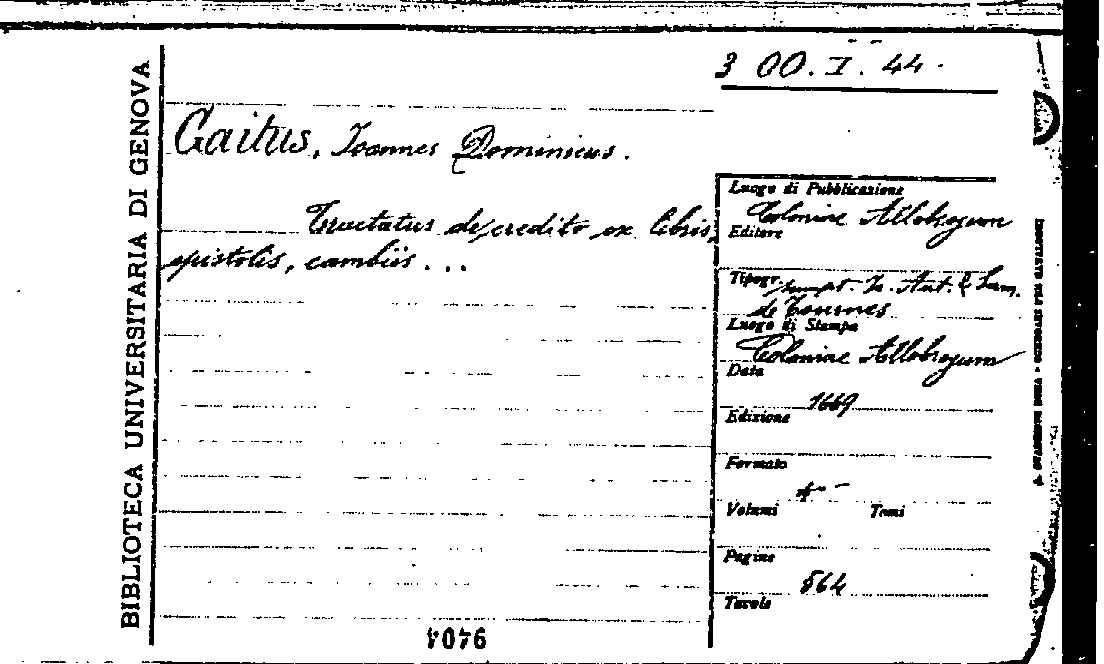 BIBLIOTECA UNIVERSITARIA DI GENOVA
3 OO. I. 44.
Gaitus, Ioannes Dominicus.
Tractatus de credito ex libris,
epistolis, cambiis...
Luogo di Pubblicazione
Coloniae Allobrogum
Editore
Tipogr. sumpt. Io. Ant. & Sam.
de Tournes
Luogo di Stampa
Coloniae Allobrogum
Data
1669
Edizione
Formato
4°
Volumi Tomi
Pagine
564
Tavole
9404